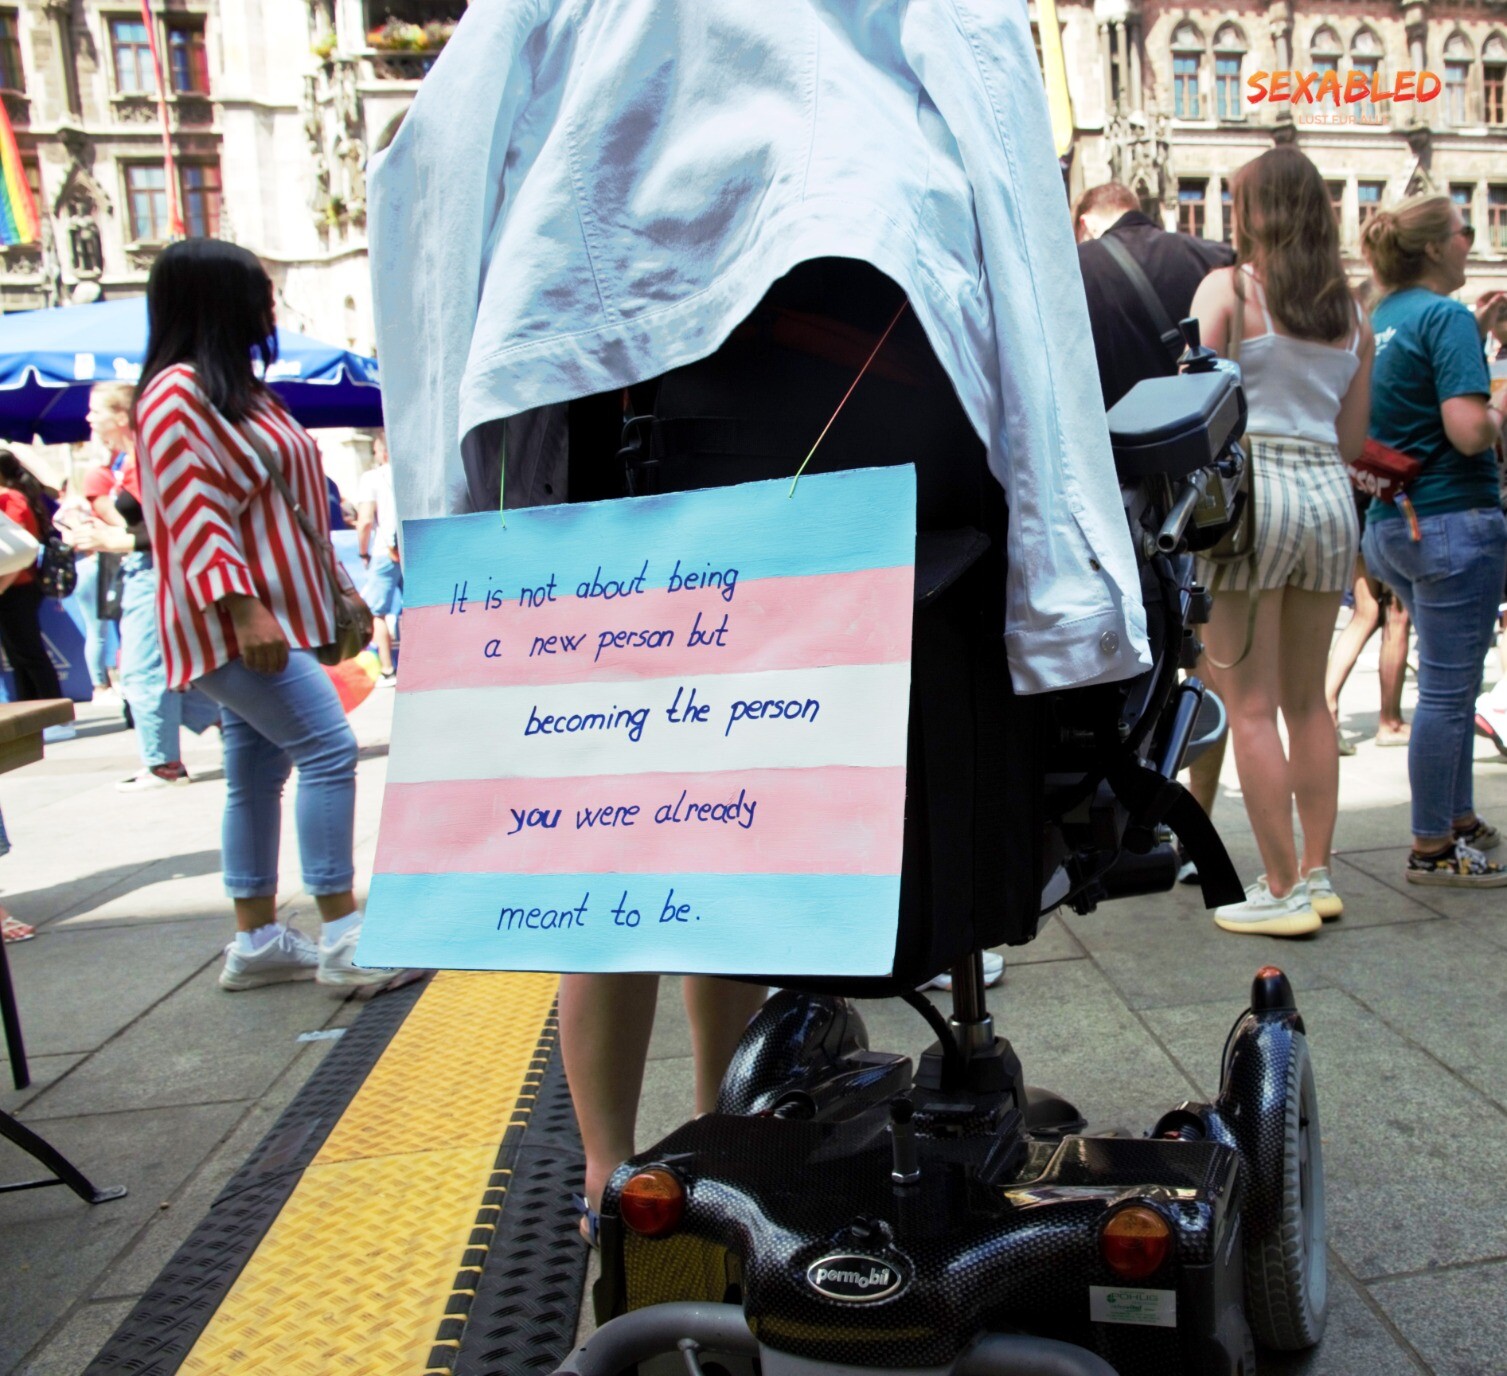 SEXABLED
LUST FÜR ALLE
It is not about being
a new person but
becoming the person
you were already
meant to be.
permobil